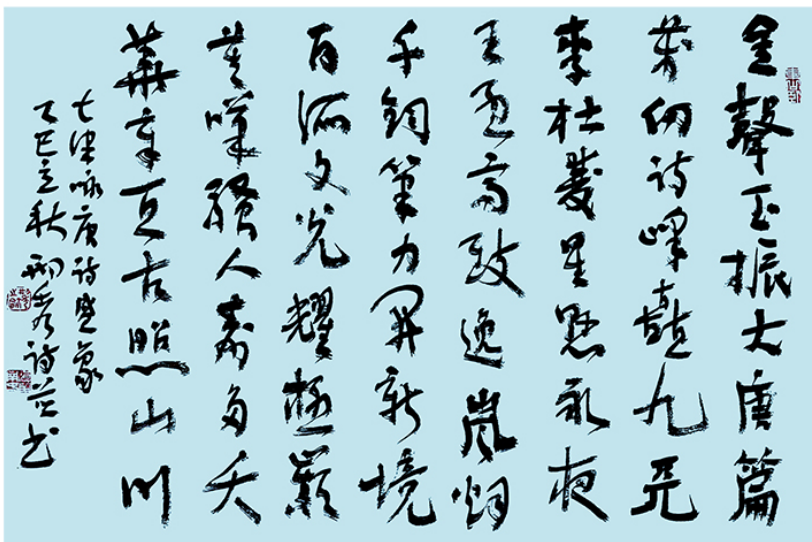 金聲玉振大唐篇
萬仞詩峰九
李杜雙星懸永夜
王孟高致逸嵐烟
千鈞筆力開新境
百派文光耀極巔
莫嘆騷人壽多夭
華章亘古照山川
七律咏唐詩盛象
乙巳立秋邢詩并书